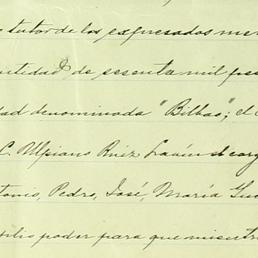 tutor de los expresados me
cantidad de sesenta mil pes
dad denominada "Bilbao"; el
C. Ulpiano Ruiz Lavin el carg
tonio, Pedro, José, María Gu
plio poder para que mientr